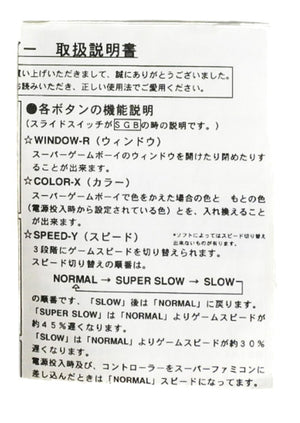 ー 取扱説明書
い上げいただきまして、誠にありがとうございました。
読みいただき、正しい使用法でご愛用ください。
●各ボタンの機能説明
(スライドスイッチがSGBの時の説明です。)
☆WINDOW-R(ウィンドウ)
スーパーゲームボーイのウィンドウを開けたり閉めたりす
ることが出来ます。
☆COLOR-X(カラー)
スーパーゲームボーイで色をかえた場合の色と もとの色
(電源投入時から設定されている色)とを、入れ換えること
が出来ます。
☆SPEED-Y(スピード)
*ソフトによってはスピード切り替え
出来ないものがあります。
3段階にゲームスピードを切り替えられます。
スピード切り替えの順番は、
NORMAL → SUPER SLOW → SLOW
の順番です、「SLOW」後は「NORMAL」に戻ります。
「SUPER SLOW」は「NORMAL」よりゲームスピードが
約45%遅くなります。
「SLOW」は「NORMAL」よりゲームスピードが約30%
遅くなります。
電源投入時及び、コントローラーをスーパーファミコンに
差し込んだときは「NORMAL」スピードになってます。